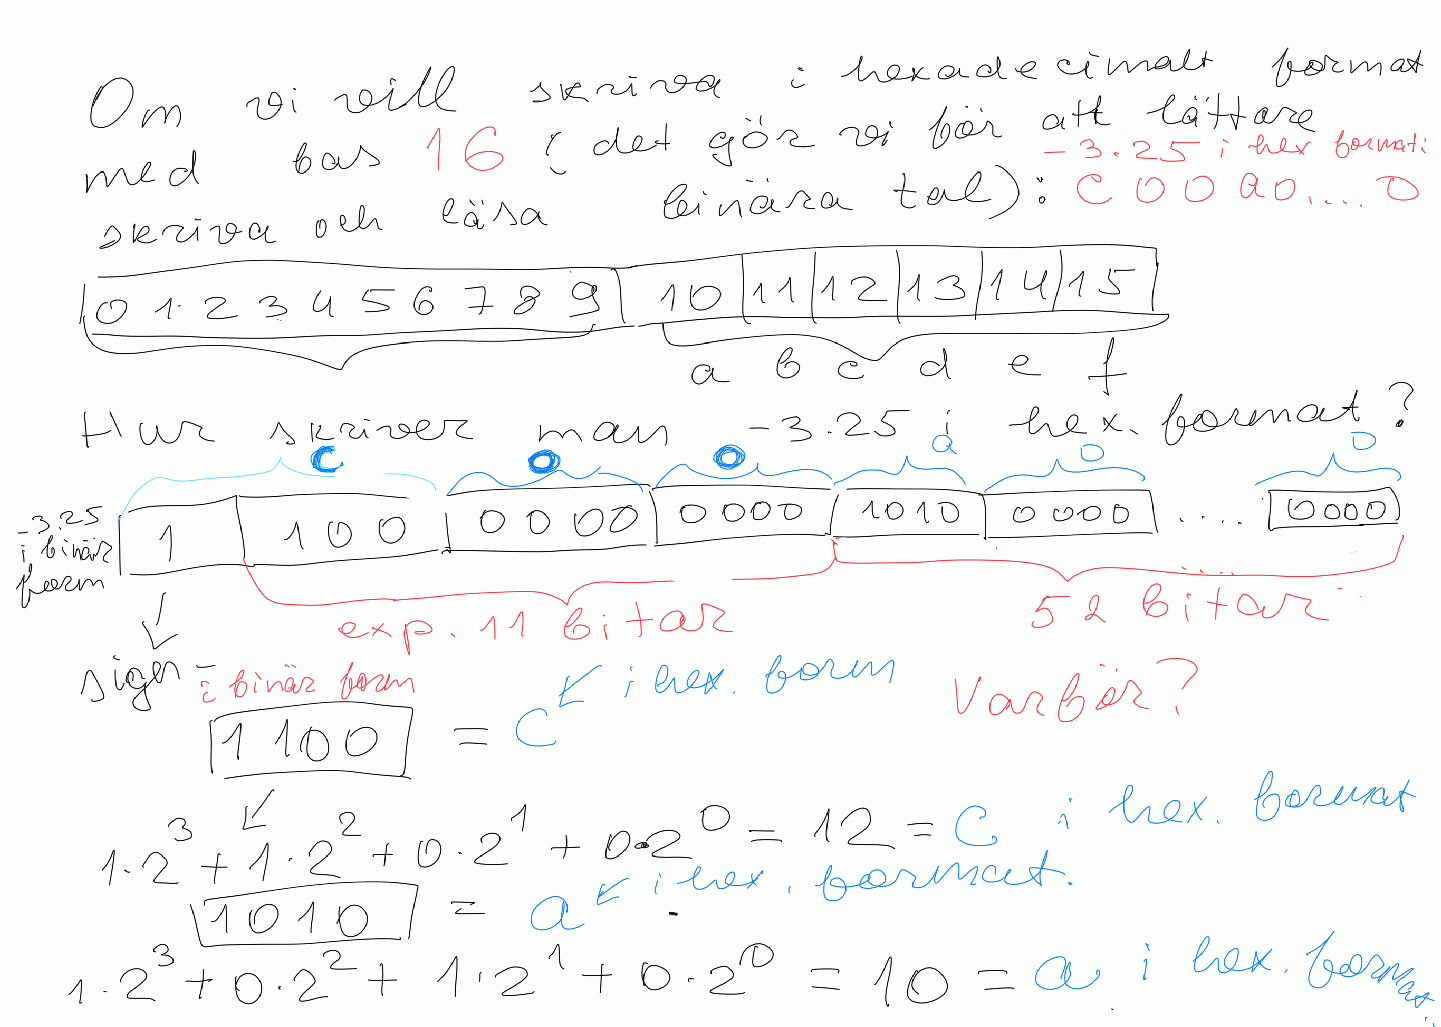 Om vi vill skriva i hexadecimalt format
med bas 16 (det gör vi för att lättare
skriva och läsa binära tal):
-3.25 i hex format:
C00a0....0
0 1 2 3 4 5 6 7 8 9 10 11 12 13 14 15
a b c d e f
Hur skriver man -3.25 i hex. format?
C 0 0 a 0 0
-3.25 i binär form
1 100 0000 0000 1010 0000 .... 0000
exp. 11 bitar 52 bitar
sign
i binär form i hex. form Varför?
1100 = C
1·2³ + 1·2² + 0·2¹ + 0·2⁰ = 12 = C i hex. format
1010 = a i hex. format.
1·2³ + 0·2² + 1·2¹ + 0·2⁰ = 10 = a i hex. format.